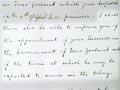 on New Zealand which your despatch
of the 9th of April ... promises. I should
then also be able to inform you of
the appointment of your successor in
the Government of New Zealand and
of the time at which he may be
expected to arrive in the Colony.